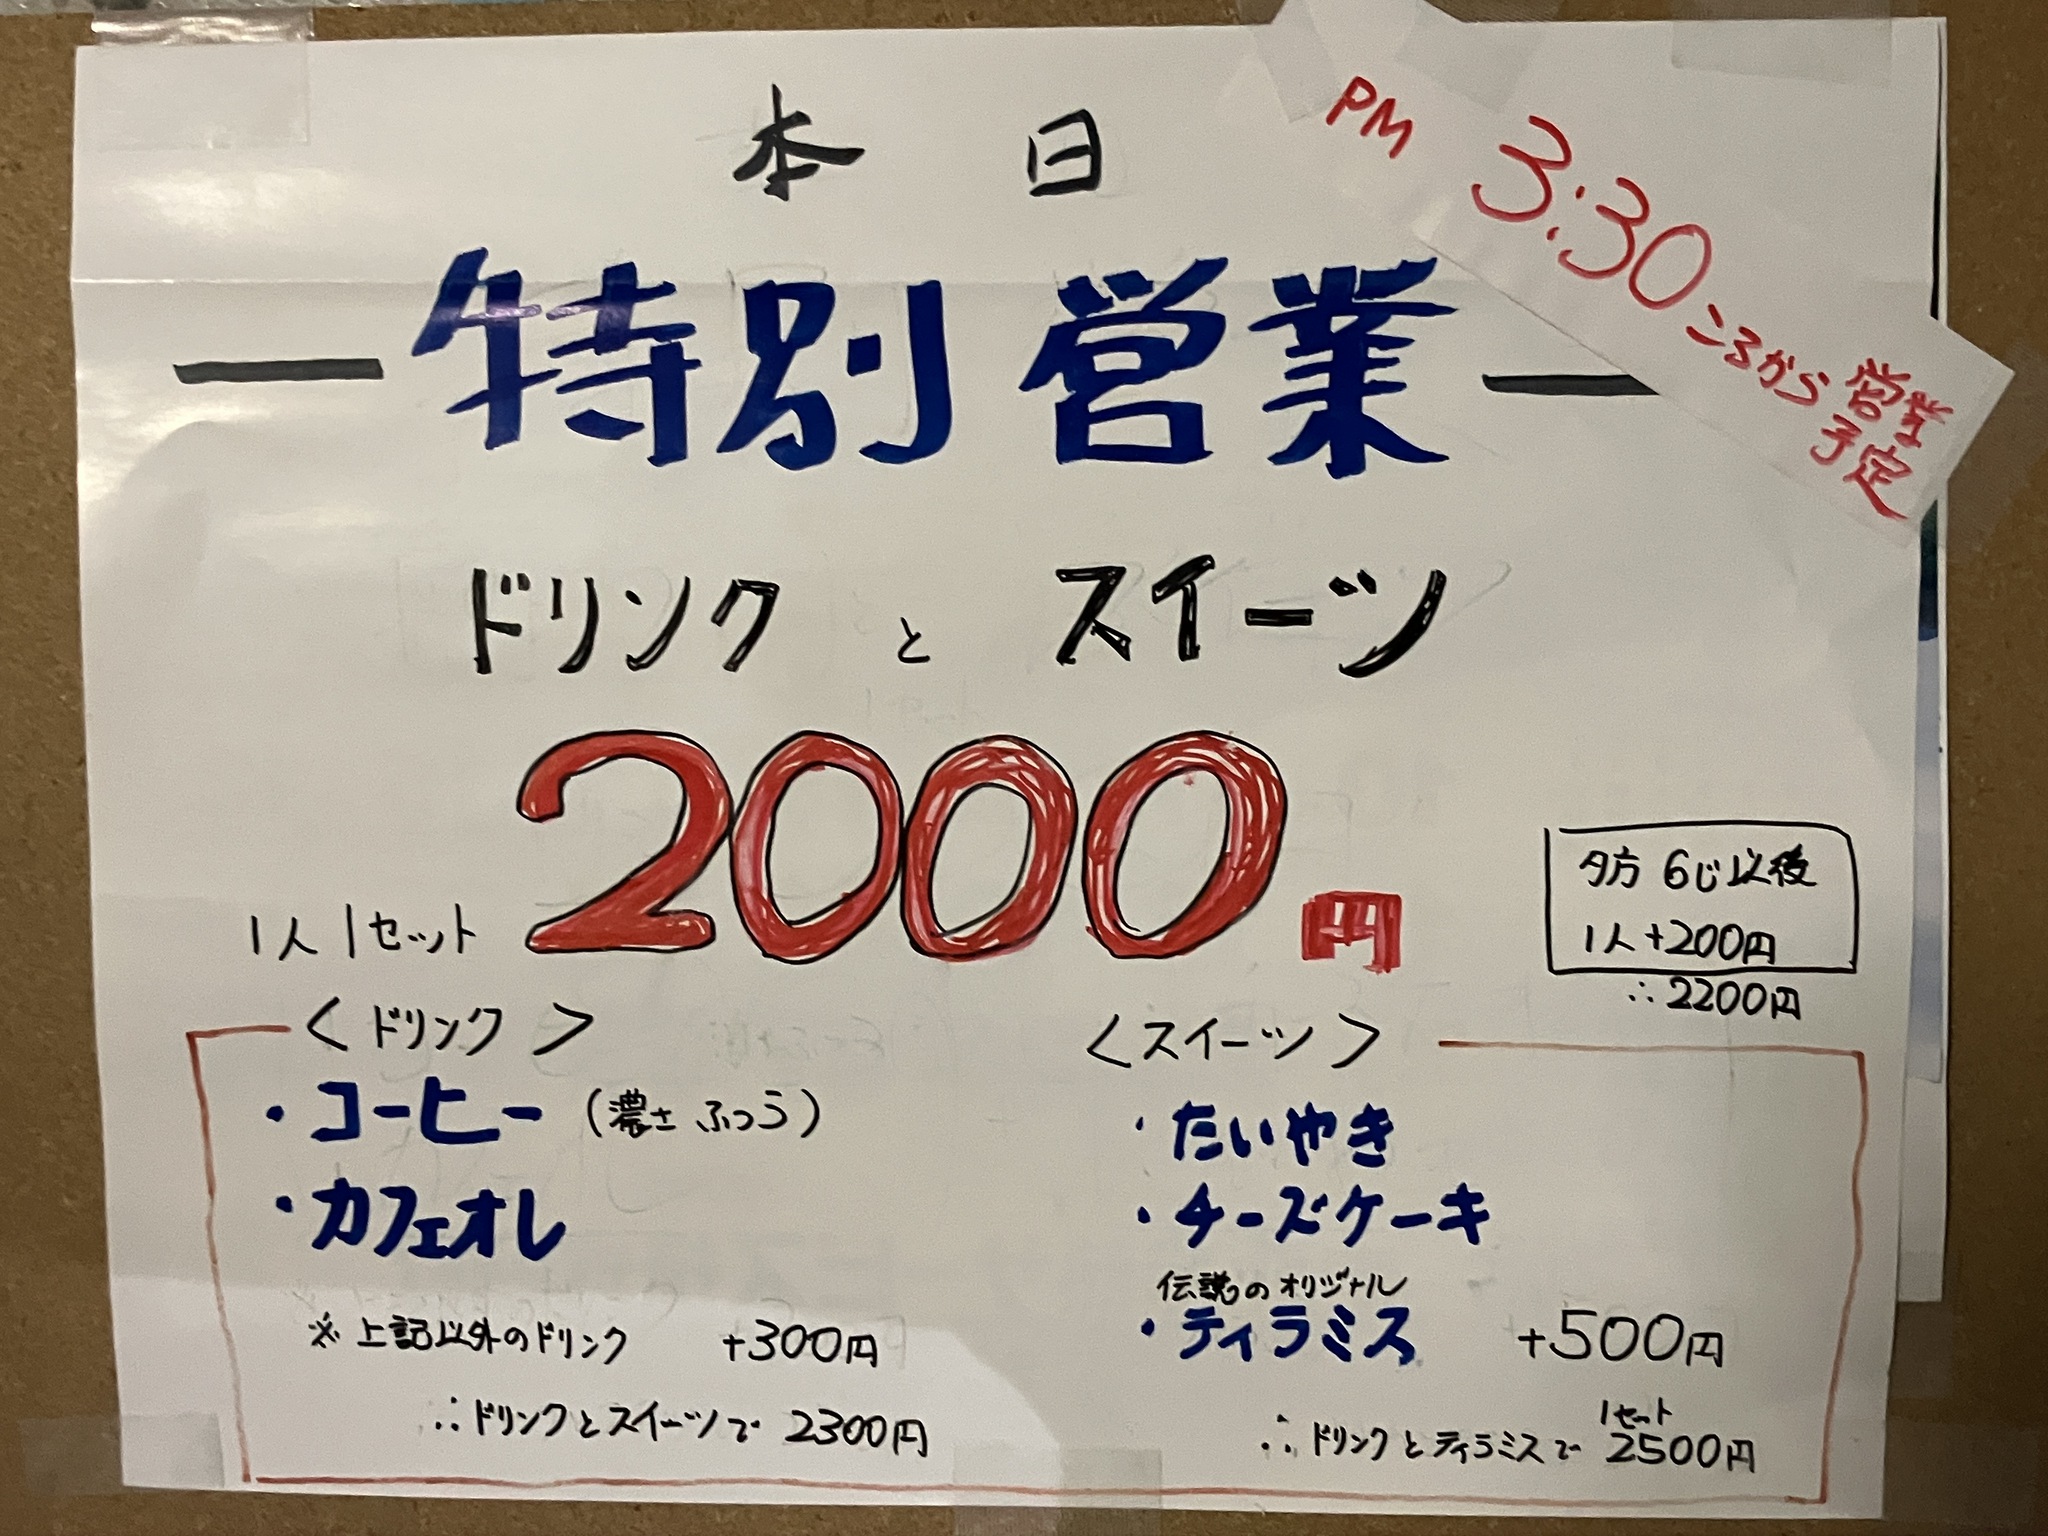 本日
PM 3:30ころから 営業予定
－特別営業－
ドリンク と スイーツ
1人1セット 2000円
夕方 6じ以後
1人+200円
∴2200円
＜ドリンク＞
・コーヒー (濃さ ふつう)
・カフェオレ
※上記以外のドリンク +300円
∴ドリンクとスイーツで 2300円
＜スイーツ＞
・たいやき
・チーズケーキ
伝説のオリジナル
・ティラミス +500円
∴ドリンクとティラミスで 1セット 2500円